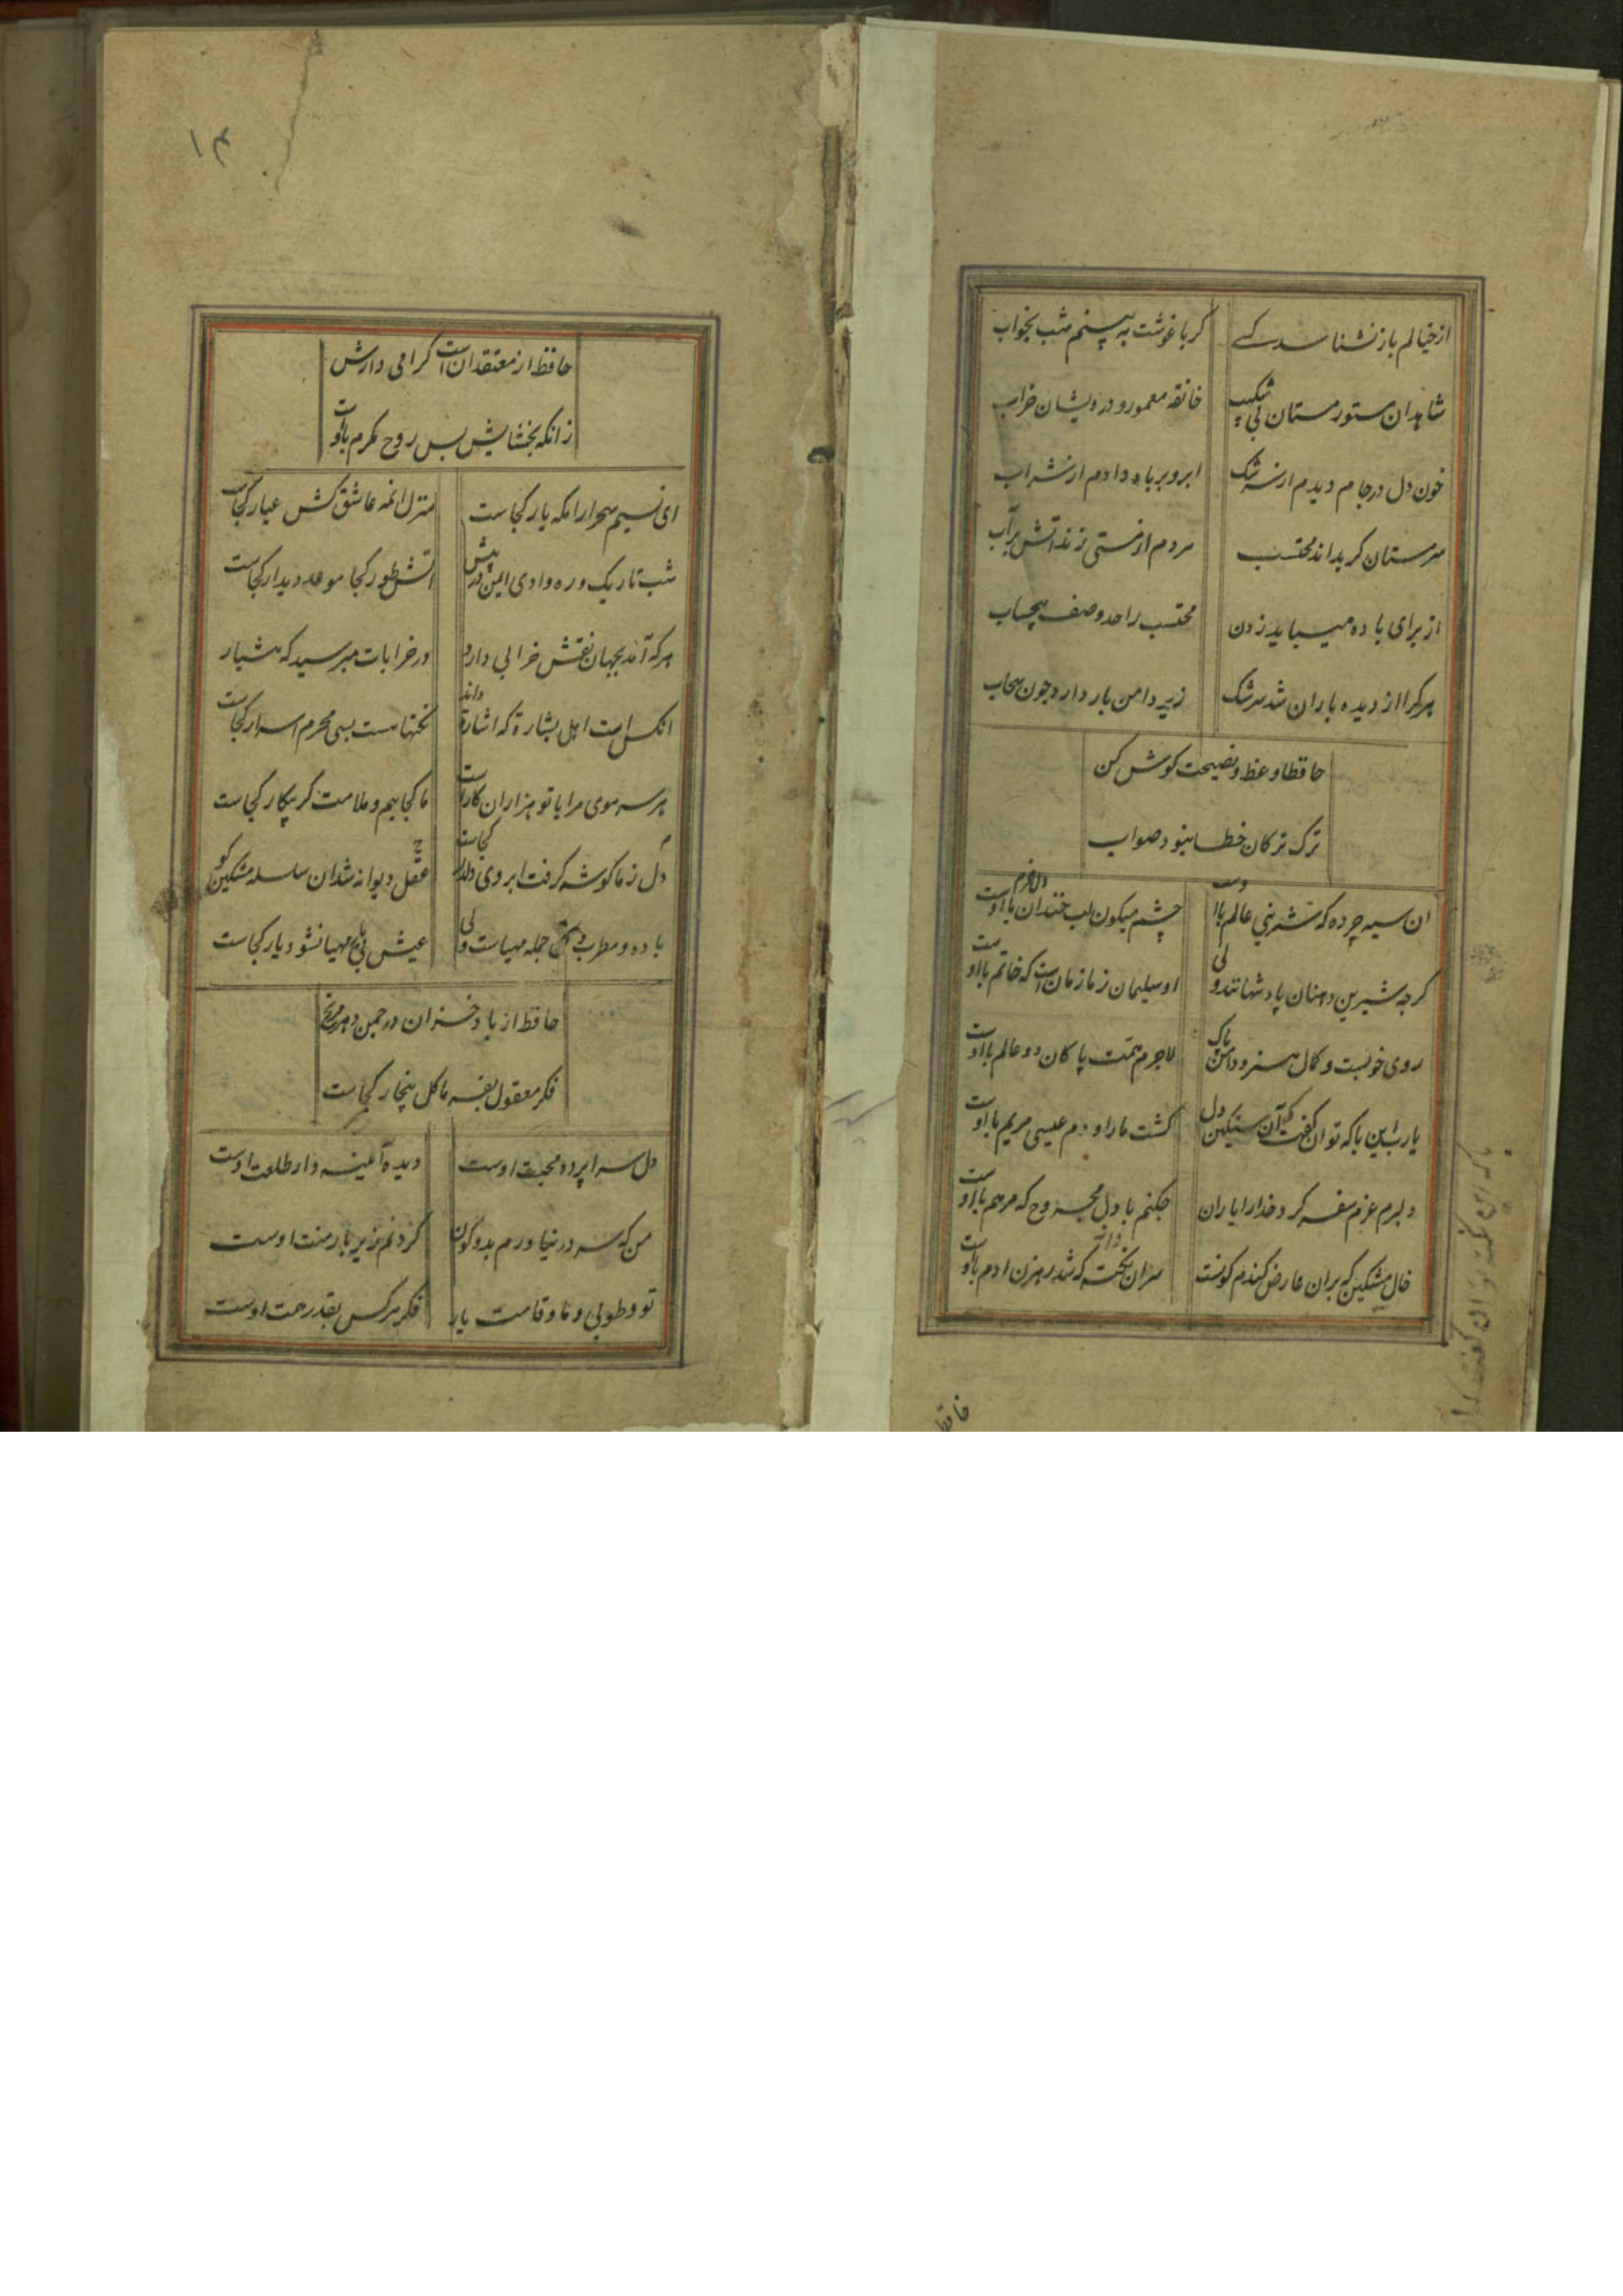 از خیالم باز نشناسد کسے کر باغوشت به بینم شب بخواب
شاهدان مستور مستان بی شکیب خانقه معمور و درویشان خراب
خون دل در جام دیدم از سرشک ابرو بر باده دادم از شراب
سرمستان کر بداند محتسب مردم از مستی زند اتش بر آب
از برای باده میباید زدن محتسب را حد و صف بیحساب
هر کرا از دیده باران شد سرشک زیر دامن بار دارد جون سحاب
حافظا وعظ و نصیحت کوش کن
ترک ترکان خطا نبود صواب
ان سیه چرده که شیرنی عالم با اوست چشم میکون لب خندان دل خرم با اوست
کرجه شیرین دهنان پادشهانند ولی او سلیمان زمان است که خاتم با اوست
روی خوبست و کمال هنر و دامن پاک لاجرم همت پاکان دو عالم با اوست
یارب این با که توان کفت که آن سنکین دل کشت ما را و دم عیسی مریم با اوست
دلبرم عزم سفر کرد خدا را یاران جکنم با دل مجروح که مرهم با اوست
خال مشکین که بران عارض کندم کونست سر ان دانه نکخته که شد رهزن ادم با اوست
حافظ
۱۳
حافظ از معتقدان است کرامی دارش
زانکه بخشایش بس روح مکرم با اوست
ای نسیم سحر ارامکه یار کجاست منزل انمه عاشق کش عیار کجاست
شب تاریک و ره وادی ایمن در پیش اتش طور کجا موعد دیدار کجاست
هر که آمد بجهان نقش خرابی دارد در خرابات مپرسید که هشیار
انکس است اهل بشارة که اشارة داند نکتها هست بسی محرم اسرار کجاست
هر سر موی مرا با تو هزاران کار است ما کجاییم و ملامت کر بیکار کجاست
عقل دیوانه شد ان سلسله مشکین کو دل ز ما کوشه کرفت ابروی دلدار کجاست
باده و مطرب و کل جمله مهیاست ولی عیش بی یار مهیا نشود یار کجاست
حافظ از باد خزان در جمن دهر مرنج
فکر معقول بفرما کل بیخار کجاست
دل سراپرده محبت اوست دیده آئینه دار طلعت اوست
من که سر در نیاورم بدو کون کردنم زیر بار منت اوست
تو و طوبی و ما و قامت یار فکر هر کس بقدر همت اوست